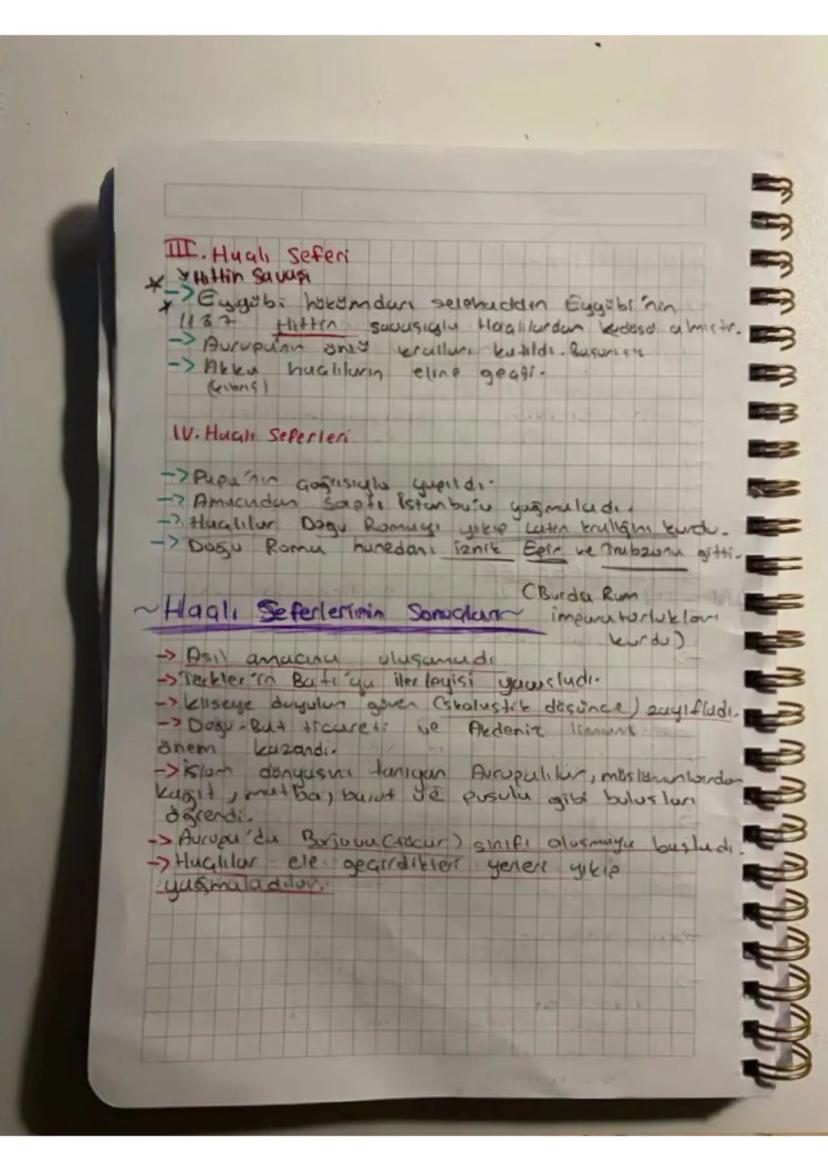 III. Haçlı Seferi
Hittin Savaşı
-> Eyyübi hükümdarı selehaddin Eyyübi'nin
1187 Hittin savaşıyla Haçlılardan kudüsü almıştır.
-> Avrupa'nın kralları katıldı. Başarısız
-> Akka haçlıların eline geçti.
(Kıbrıs)
IV. Haçlı Seferleri
-> Papa'nın çağrısıyla yapıldı.
-> Amacından saptı İstanbulu yağmaladı.
-> Haçlılar Doğu Romayı yıkıp Latin krallığını kurdu.
-> Doğu Roma hanedanı İznik Epir ve Trabzona gitti.
(Burda Rum
~Haçlı Seferlerinin Sonuçları~ imparatorlukları
kurdu)
-> Asıl amacına ulaşamadı
-> Türkler'in Batı'ya ilerleyişi yavaşladı.
-> kliseye duyulan güven (skolastik düşünce) zayıfladı.
-> Doğu-Batı ticareti ve Akdeniz limanı
önem kazandı.
-> islam dünyasını tanıyan Avrupalılar, müslümanlardan
kağıt, matba, barut ve pusula gibi bulusları
öğrendi.
-> Avrupa'da Burjuva (tüccar) sınıfı oluşmaya başladı.
-> Haçlılar ele geçirdikleri yerleri yıkıp
yağmaladılar.